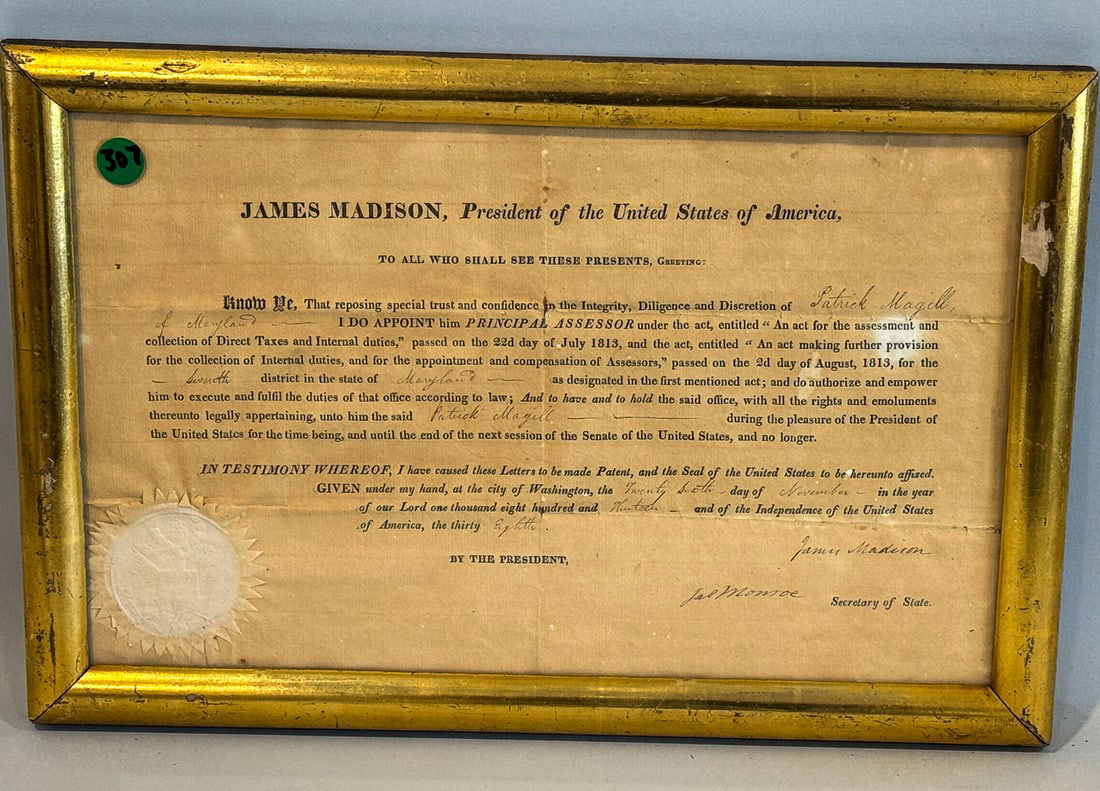 307
JAMES MADISON, President of the United States of America,
TO ALL WHO SHALL SEE THESE PRESENTS, GREETING:
Know Ye, That reposing special trust and confidence in the Integrity, Diligence and Discretion of Patrick Magill,
of Maryland — I DO APPOINT him PRINCIPAL ASSESSOR under the act, entitled “ An act for the assessment and
collection of Direct Taxes and Internal duties,” passed on the 22d day of July 1813, and the act, entitled “ An act making further provision
for the collection of Internal duties, and for the appointment and compensation of Assessors,” passed on the 2d day of August, 1813, for the
— district in the state of Maryland — as designated in the first mentioned act; and do authorize and empower
him to execute and fulfil the duties of that office according to law; And to have and to hold the said office, with all the rights and emoluments
thereunto legally appertaining, unto him the said Patrick Magill — — during the pleasure of the President of
the United States for the time being, and until the end of the next session of the Senate of the United States, and no longer.
IN TESTIMONY WHEREOF, I have caused these Letters to be made Patent, and the Seal of the United States to be hereunto affixed.
GIVEN under my hand, at the city of Washington, the Twenty Sixth – day of November – in the year
of our Lord one thousand eight hundred and thirteen – and of the Independence of the United States
of America, the thirty Eighth.
James Madison
BY THE PRESIDENT,
Jas Monroe Secretary of State.